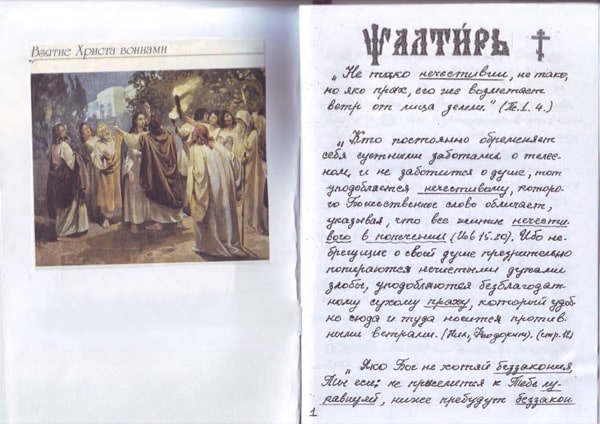 Взятие Христа воинами
ѰАЛТИ́РЬ
„Не тако нечестивии, не тако,
но яко прах, его же возметает
ветр от лица земли." (Пс. 1. 4.)
„Кто постоянно обременяет
себя суетными заботами о телес-
ном, и не заботится о душе, тот
уподобляется нечестивому, которо-
го Божественное слово обличает,
указывая, что все житие нечести-
вого в попечении (Иов 15. 20). Ибо не-
брегущие о своей душе презрительно
попираются нечистыми духами
злобы, уподобляются безблагодат-
ному сухому праху, который удоб-
но сюда и туда носится против-
ными ветрами. (Феодорит). (стр. 12)
„Яко Бог не хотяй беззакония,
Ты еси; не приселится к Тебе лу-
кавнуяй, ниже пребудут беззакон-
1